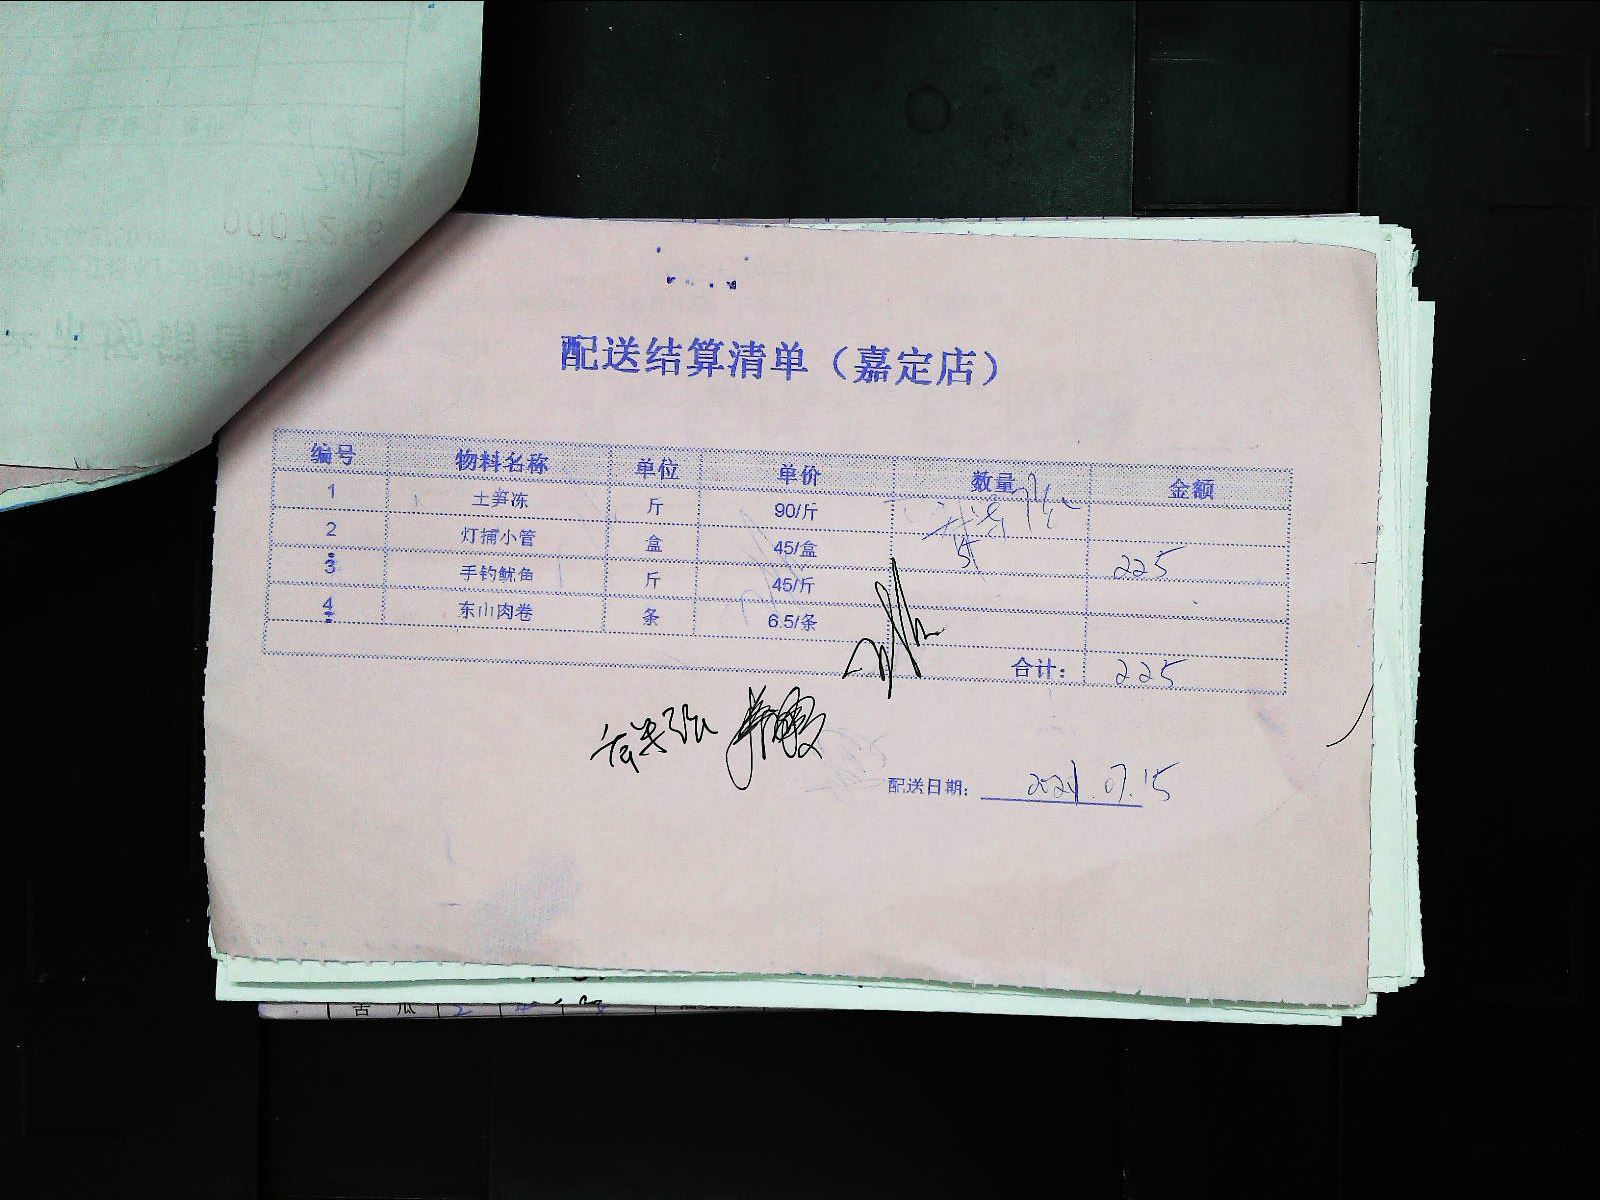 配送结算清单（嘉定店）
编号 物料名称 单位 单价 数量 金额
1 土笋冻 斤 90/斤
2 灯捕小管 盒 45/盒 5 225
3 手钓鱿鱼 斤 45/斤
4 东山肉卷 条 6.5/条
合计： 225
配送日期： 2021.07.15
苦瓜 2